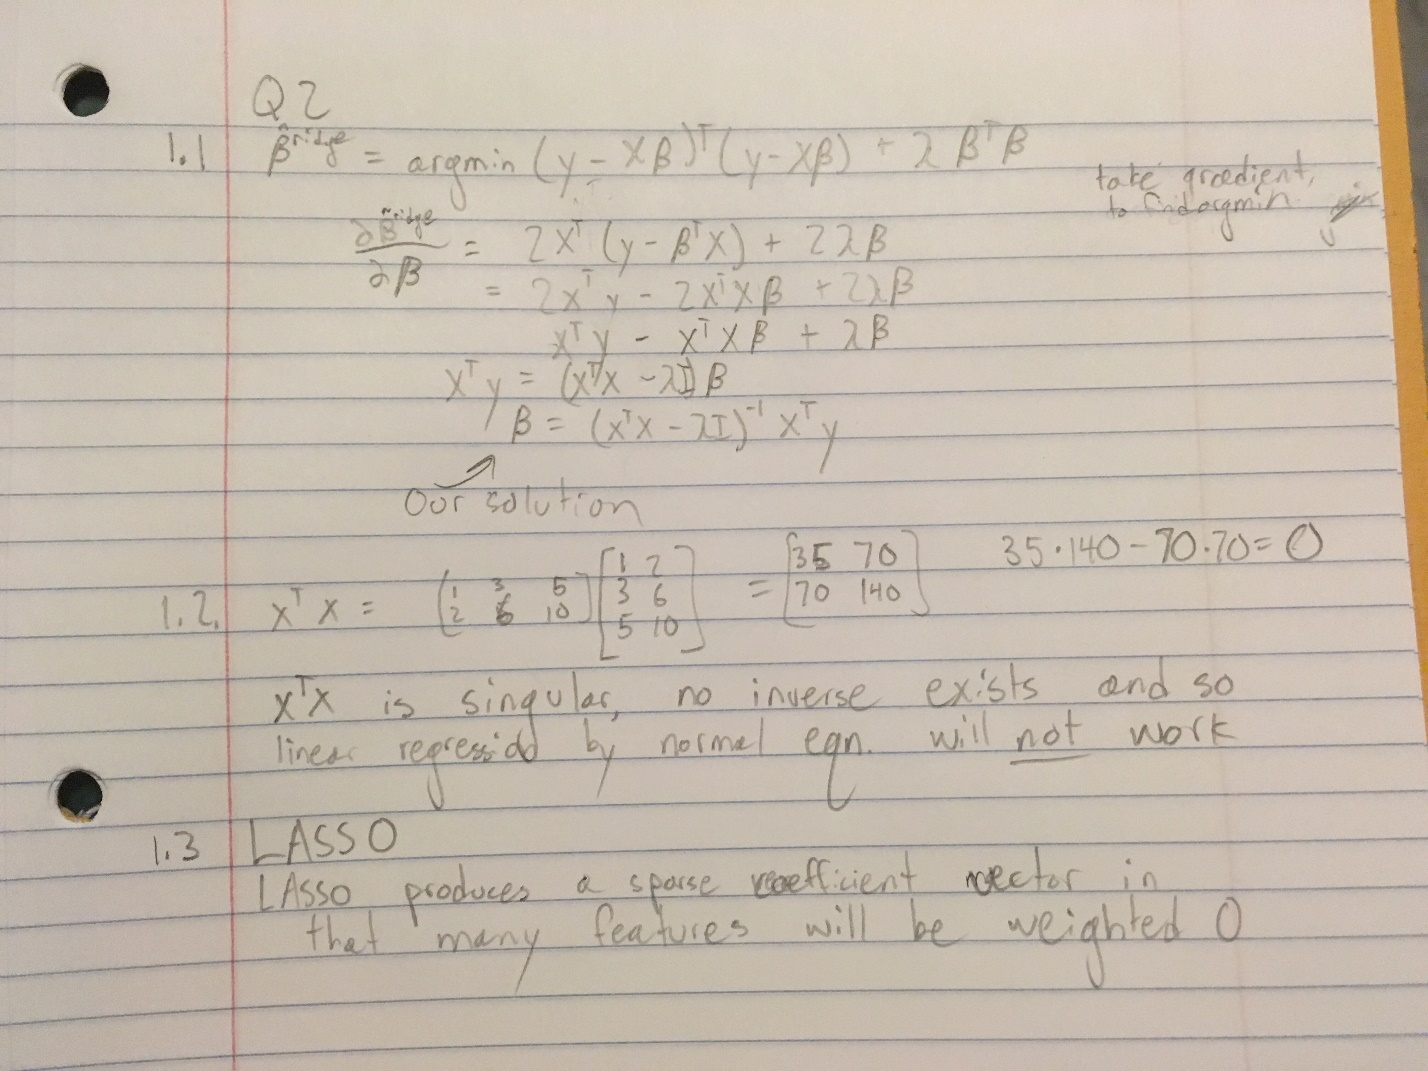 Q2
1.1 β̂ʳⁱᵈᵍᵉ = argmin (y - Xβ)ᵀ(y - Xβ) + λ βᵀβ
take gradient,
to find argmin
∂β̂ʳⁱᵈᵍᵉ/∂β = 2Xᵀ(y - βᵀX) + 2λβ
= 2xᵀy - 2xᵀxβ + 2λβ
xᵀy - xᵀxβ + λβ
xᵀy = (xᵀx - λI)β
β = (xᵀx - λI)⁻¹ xᵀy
Our solution
1.2. xᵀx = (1 3 5; 2 6 10) [1 2; 3 6; 5 10] = [35 70; 70 140] 35·140 - 70·70 = 0
xᵀx is singular, no inverse exists and so
linear by normal eqn. will not work
1.3 LASSO
LASSO produces a sparse coefficient vector in
that many features will be weighted 0